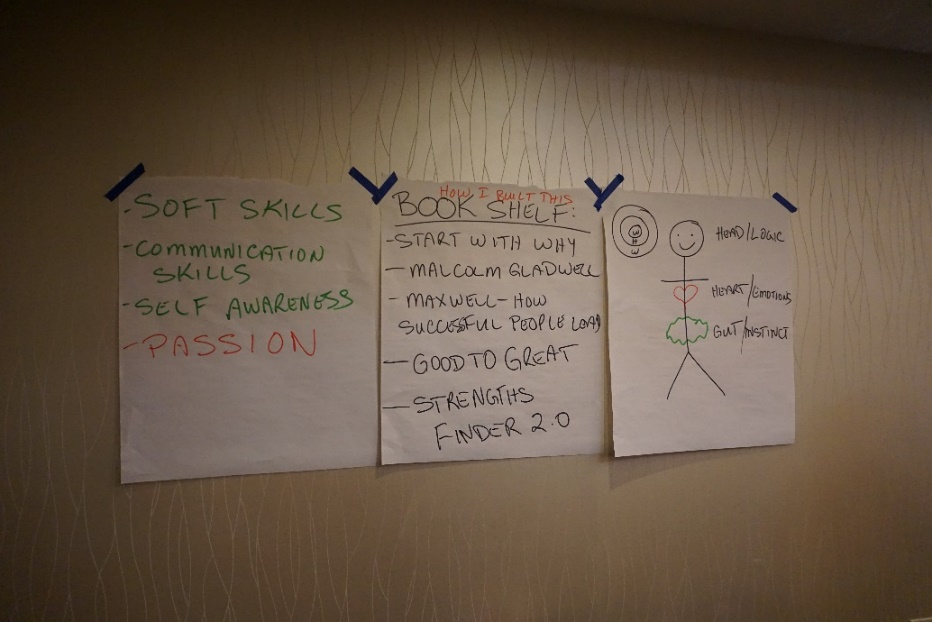 - SOFT SKILLS
- COMMUNICATION
SKILLS
- SELF AWARENESS
- PASSION
HOW I BUILT THIS
BOOK SHELF:
- START WITH WHY
- MALCOLM GLADWELL
- MAXWELL - HOW
SUCCESSFUL PEOPLE LEAD
- GOOD TO GREAT
- STRENGTHS
FINDER 2.0
W
H
W
HEAD/LOGIC
HEART/EMOTIONS
GUT/INSTINCT